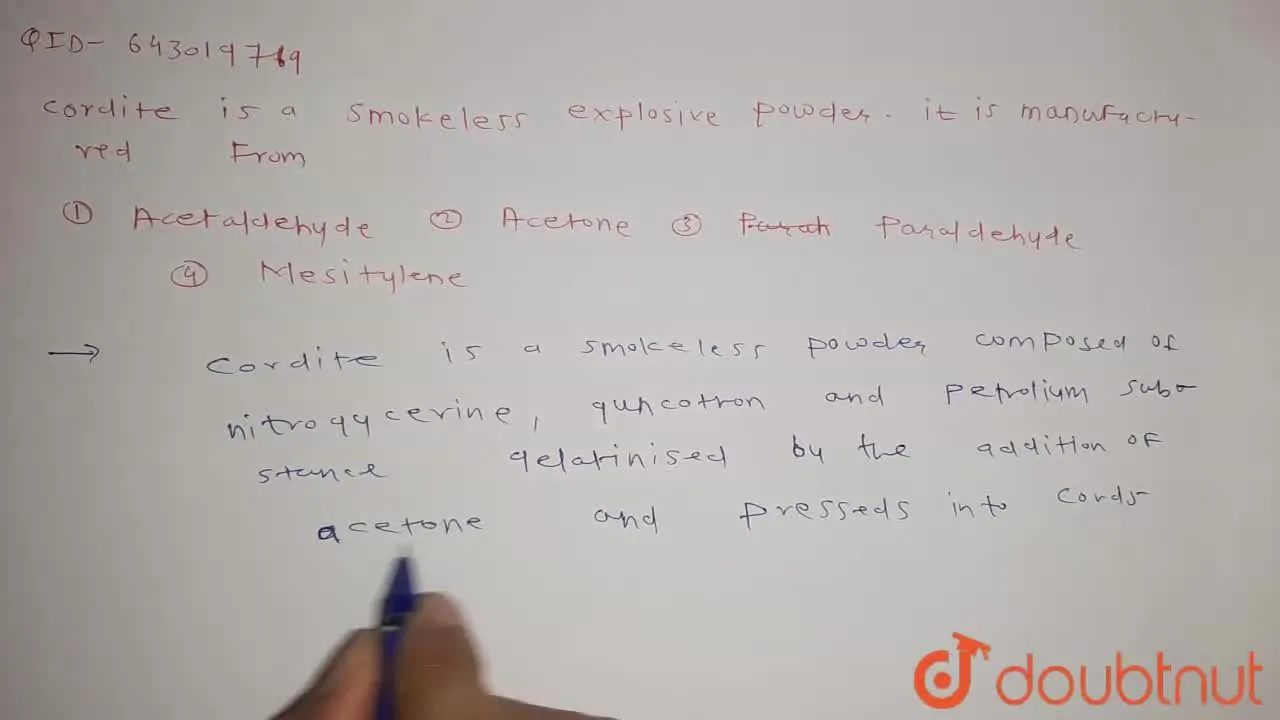 QID- 643019769
cordite is a smokeless explosive powder. it is manufactu-
red From
① Acetaldehyde ② Acetone ③ Paraldehyde
④ Mesitylene
→ Cordite is a smokeless powder composed of
nitrogycerine, guncotron and petrolium sub-
stance gelatinised by the addition of
acetone and presseds into cords-
doubtnut